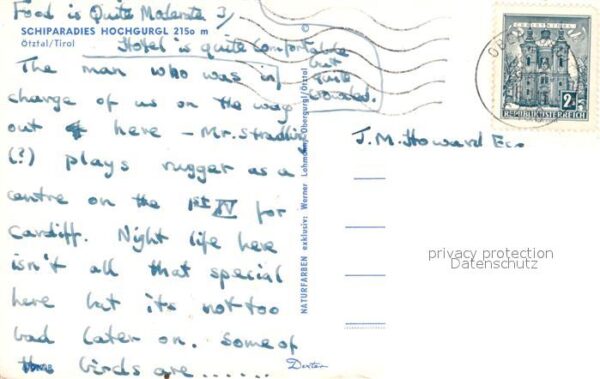 Food is Quite Moderate
SCHIPARADIES HOCHGURGL 2150 m
Ötztal/Tirol
Hotel is quite comfortable
but
quite
crowded.
The man who was in
charge of us on the way
out here - Mr.
(?) plays rugger as a
centre on the 1st XV for
Cardiff. Night life here
isn't all that special
here but its not too
bad later on. Some of
the birds are ......
Dexter
NATURFARBEN exklusiv: Werner Lohmann, Obergurgl/Ötztal
J. M. Howard Esq
2
REPUBLIK ÖSTERREICH
privacy protection
Datenschutz